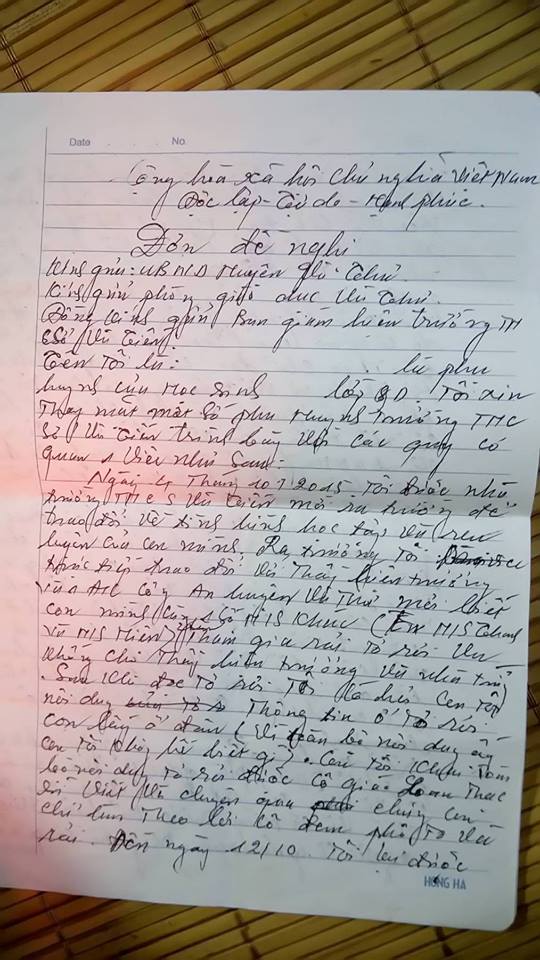 Date No.
Cộng hòa xã hội chủ nghĩa Việt Nam
Độc lập - Tự do - Hạnh phúc.
Đơn đề nghị
Kính gửi: UBND Huyện Vũ Thư
Kính gửi phòng giáo dục Vũ Thư.
Đồng kính gửi Ban giám hiệu trường TH
cơ sở Vũ Tiến
Tên tôi là: là phụ
huynh của học sinh lớp 8D. Tôi xin
thay mặt một số phụ huynh trường THC
sở Vũ Tiến trình bày với các quý cơ
quan 1 việc như sau:
Ngày 4 tháng 10/2015 Tôi được nhà
trường THCS Vũ Tiến mời ra trường để
trao đổi về tình hình học tập và rèn
luyện của con mình. Ra trường tôi
trực tiếp trao đổi với Thầy hiệu trưởng
và 1 A/C Công An huyện Vũ Thư mới biết
con mình cùng 1 số H/S khác (Em H/S
và H/S Hiền) Tham gia rải tờ rơi
không cho Thầy hiệu trưởng và nhà trường
. Sau khi đọc tờ rơi Tôi có hỏi con tôi
nội dung Thông tin ở tờ rơi
con lấy ở đâu (Vì toàn bộ nội dung ấy
con tôi không hề biết gì). Con tôi khai toàn
bộ nội dung tờ rơi được cô giáo Loan
viết và chuyển qua chúng con
chỉ làm theo lời cô đem phô tô và
rải. Đến ngày 12/10 Tôi lại được
HONG HA